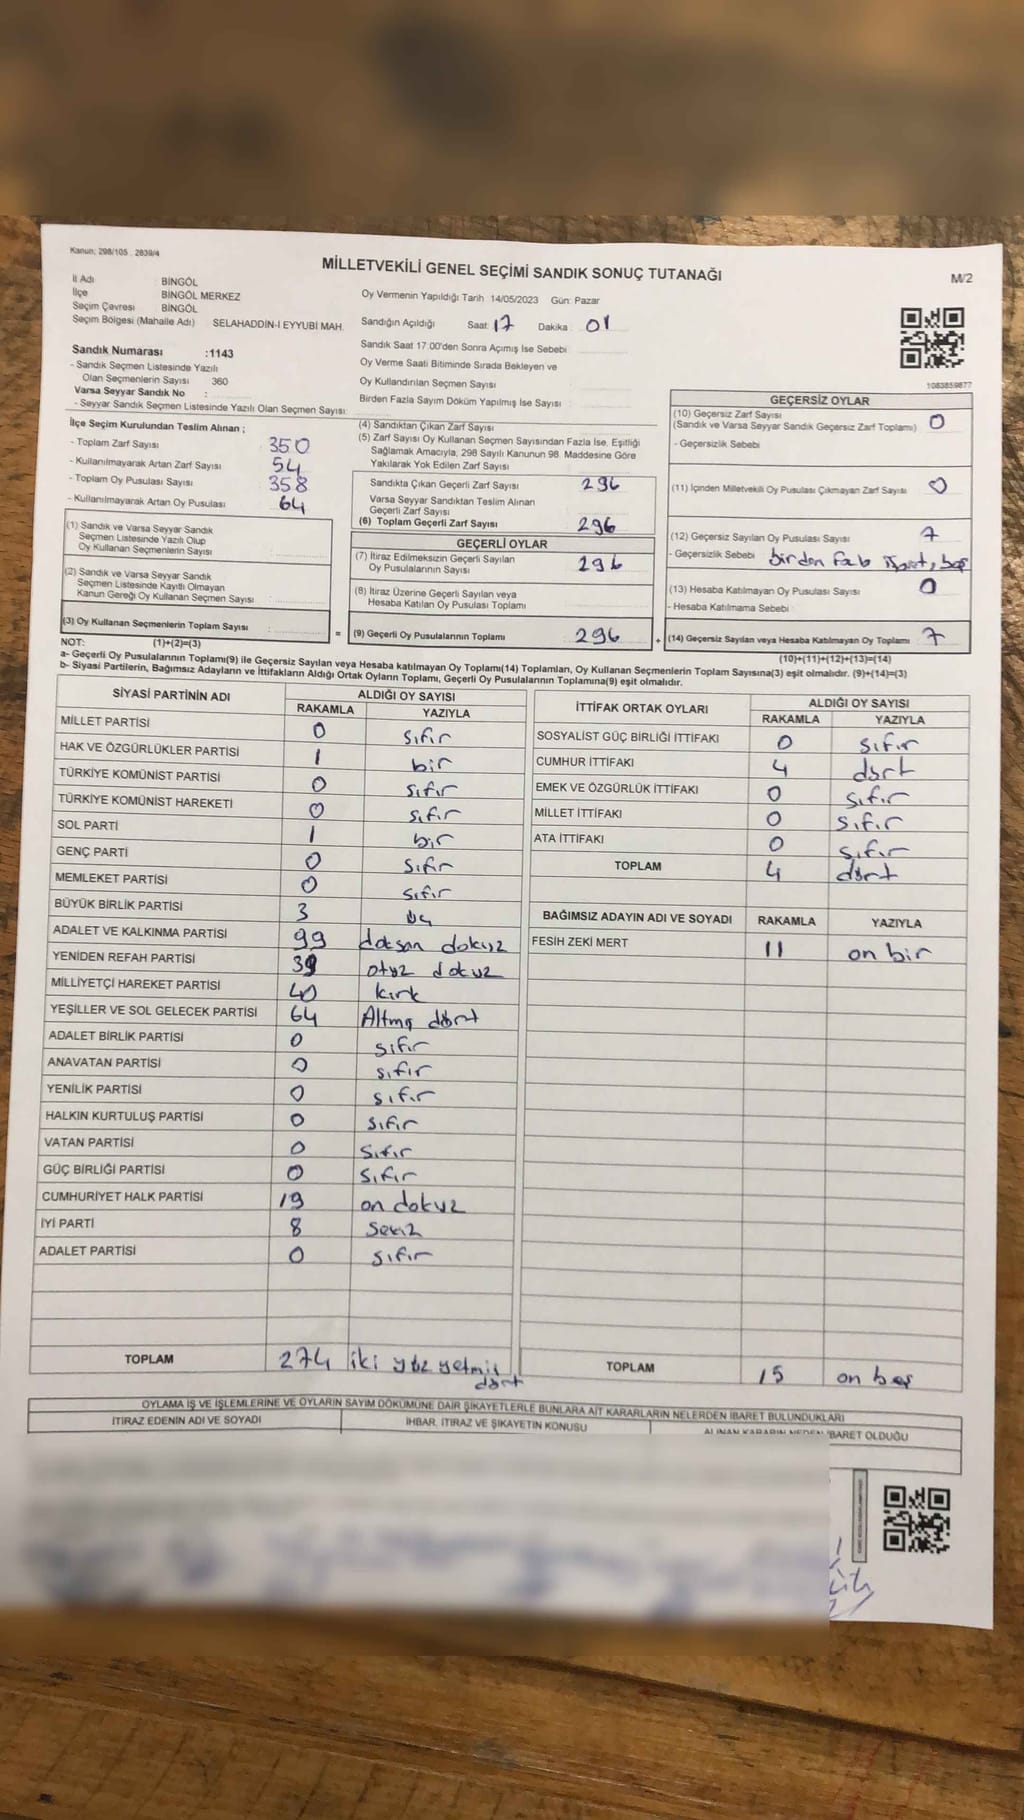 Kanun; 298/105 . 2839/4
MİLLETVEKİLİ GENEL SEÇİMİ SANDIK SONUÇ TUTANAĞI
M/2
İl Adı : BİNGÖL
İlçe : BİNGÖL MERKEZ
Seçim Çevresi : BİNGÖL
Seçim Bölgesi (Mahalle Adı) : SELAHADDİN-İ EYYUBİ MAH.
Oy Vermenin Yapıldığı Tarih 14/05/2023 Gün: Pazar
Sandığın Açıldığı Saat: 17 Dakika : 01
Sandık Saat 17:00'den Sonra Açımış İse Sebebi
Oy Verme Saati Bitiminde Sırada Bekleyen ve
Oy Kullandırılan Seçmen Sayısı
Birden Fazla Sayım Döküm Yapılmış İse Sayısı :
Sandık Numarası :1143
- Sandık Seçmen Listesinde Yazılı
Olan Seçmenlerin Sayısı : 360
Varsa Seyyar Sandık No :
- Seyyar Sandık Seçmen Listesinde Yazılı Olan Seçmen Sayısı:
1083859877
İlçe Seçim Kurulundan Teslim Alınan ;
- Toplam Zarf Sayısı : 350
- Kullanılmayarak Artan Zarf Sayısı : 54
- Toplam Oy Pusulası Sayısı : 358
- Kullanılmayarak Artan Oy Pusulası : 64
(1) Sandık ve Varsa Seyyar Sandık
Seçmen Listesinde Yazılı Olup
Oy Kullanan Seçmenlerin Sayısı :
(2) Sandık ve Varsa Seyyar Sandık
Seçmen Listesinde Kayıtlı Olmayan
Kanun Gereği Oy Kullanan Seçmen Sayısı :
(3) Oy Kullanan Seçmenlerin Toplam Sayısı :
(1)+(2)=(3)
(4) Sandıktan Çıkan Zarf Sayısı
(5) Zarf Sayısı Oy Kullanan Seçmen Sayısından Fazla İse, Eşitliği
Sağlamak Amacıyla, 298 Sayılı Kanunun 98. Maddesine Göre
Yakılarak Yok Edilen Zarf Sayısı
Sandıkta Çıkan Geçerli Zarf Sayısı : 296
Varsa Seyyar Sandıktan Teslim Alınan
Geçerli Zarf Sayısı
(6) Toplam Geçerli Zarf Sayısı : 296
GEÇERLİ OYLAR
(7) İtiraz Edilmeksizin Geçerli Sayılan
Oy Pusulalarının Sayısı : 296
(8) İtiraz Üzerine Geçerli Sayılan veya
Hesaba Katılan Oy Pusulası Toplamı
= (9) Geçerli Oy Pusulalarının Toplamı : 296
GEÇERSİZ OYLAR
(10) Geçersiz Zarf Sayısı
(Sandık ve Varsa Seyyar Sandık Geçersiz Zarf Toplamı) : 0
- Geçersizlik Sebebi :
(11) İçinden Milletvekili Oy Pusulası Çıkmayan Zarf Sayısı : 0
(12) Geçersiz Sayılan Oy Pusulası Sayısı : 7
- Geçersizlik Sebebi : birden fazla işaret, boş
(13) Hesaba Katılmayan Oy Pusulası Sayısı : 0
- Hesaba Katılmama Sebebi :
+ (14) Geçersiz Sayılan veya Hesaba Katılmayan Oy Toplamı : 7
(10)+(11)+(12)+(13)=(14)
NOT:
a- Geçerli Oy Pusulalarının Toplamı(9) ile Geçersiz Sayılan veya Hesaba katılmayan Oy Toplamı(14) Toplamları, Oy Kullanan Seçmenlerin Toplam Sayısına(3) eşit olmalıdır. (9)+(14)=(3)
b- Siyasi Partilerin, Bağımsız Adayların ve İttifakların Aldığı Ortak Oyların Toplamı, Geçerli Oy Pusulalarının Toplamına(9) eşit olmalıdır.
SİYASİ PARTİNİN ADI ALDIĞI OY SAYISI
RAKAMLA YAZIYLA
MİLLET PARTİSİ 0 sıfır
HAK VE ÖZGÜRLÜKLER PARTİSİ 1 bir
TÜRKİYE KOMÜNİST PARTİSİ 0 sıfır
TÜRKİYE KOMÜNİST HAREKETİ 0 sıfır
SOL PARTİ 1 bir
GENÇ PARTİ 0 sıfır
MEMLEKET PARTİSİ 0 sıfır
BÜYÜK BİRLİK PARTİSİ 3 üç
ADALET VE KALKINMA PARTİSİ 99 doksan dokuz
YENİDEN REFAH PARTİSİ 39 otuz dokuz
MİLLİYETÇİ HAREKET PARTİSİ 40 kırk
YEŞİLLER VE SOL GELECEK PARTİSİ 64 Altmış dört
ADALET BİRLİK PARTİSİ 0 sıfır
ANAVATAN PARTİSİ 0 sıfır
YENİLİK PARTİSİ 0 sıfır
HALKIN KURTULUŞ PARTİSİ 0 sıfır
VATAN PARTİSİ 0 sıfır
GÜÇ BİRLİĞİ PARTİSİ 0 sıfır
CUMHURİYET HALK PARTİSİ 19 on dokuz
İYİ PARTİ 8 sekiz
ADALET PARTİSİ 0 sıfır
TOPLAM 274 iki yüz yetmiş
dört
İTTİFAK ORTAK OYLARI ALDIĞI OY SAYISI
RAKAMLA YAZIYLA
SOSYALİST GÜÇ BİRLİĞİ İTTİFAKI 0 sıfır
CUMHUR İTTİFAKI 4 dört
EMEK VE ÖZGÜRLÜK İTTİFAKI 0 sıfır
MİLLET İTTİFAKI 0 sıfır
ATA İTTİFAKI 0 sıfır
TOPLAM 4 dört
BAĞIMSIZ ADAYIN ADI VE SOYADI RAKAMLA YAZIYLA
FESİH ZEKİ MERT 11 on bir
TOPLAM 15 on beş
OYLAMA İŞ VE İŞLEMLERİNE VE OYLARIN SAYIM DÖKÜMÜNE DAİR ŞİKAYETLERLE BUNLARA AİT KARARLARIN NELERDEN İBARET BULUNDUKLARI
İTİRAZ EDENİN ADI VE SOYADI
İHBAR, İTİRAZ VE ŞİKAYETİN KONUSU
ALINAN KARARIN NEDEN İBARET OLDUĞU